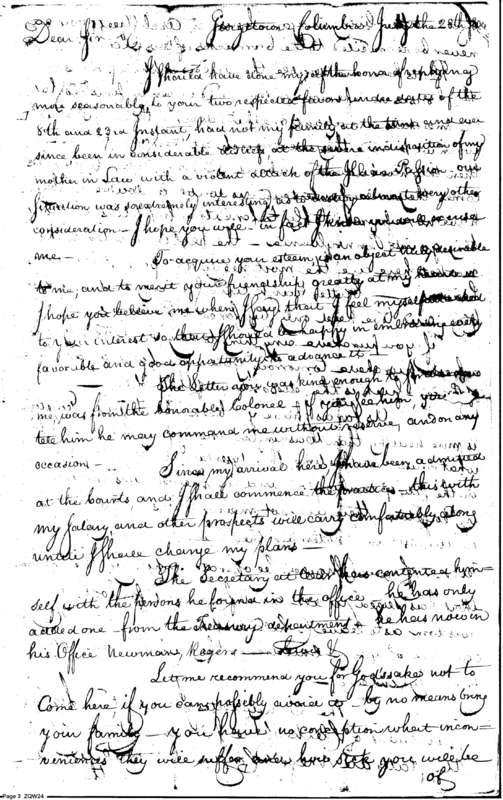 Georgetown Columbia July the 28th
Dear Sir
I should have done myself the honor of replying
more seasonably to your two respected favors under dates of the
8th and 23rd Instant, had not my family at the time and ever
since been in considerable distress at the indisposition of my
mother in Law with a violent attack of the Illiac Passion our
situation was so extremely interesting as to every other
consideration — I hope you will in fact I know you do excuse
me —
To acquire your esteem is an object desirable
to me, and to merit your friendship greatly at my heart
I hope you believe me when I say that I feel myself
to your interest so that I should be happy in embracing every
favorable and good opportunity to advance it
The letter you was kind enough to
me, was from the honorable Colonel if you see him, you
tele him he may command me without reserve, and on any
occasion —
Since my arrival here I have been admitted
at the Courts and I shall commence the practice this with
my Salary and other prospects will carry comfortably along
until I shall change my plans —
The Secretary at War has contented him=
self with the persons he found in the office he has only
added one from the Treasury department he has now in
his Office Newman, Rogers — &
Let me recommend you for God's sake not to
Come here if you can possibly avoid it — by no means bring
your family — you have no conception what incon=
veniences they will suffer over here you will be
of
Page 3 ZQW24